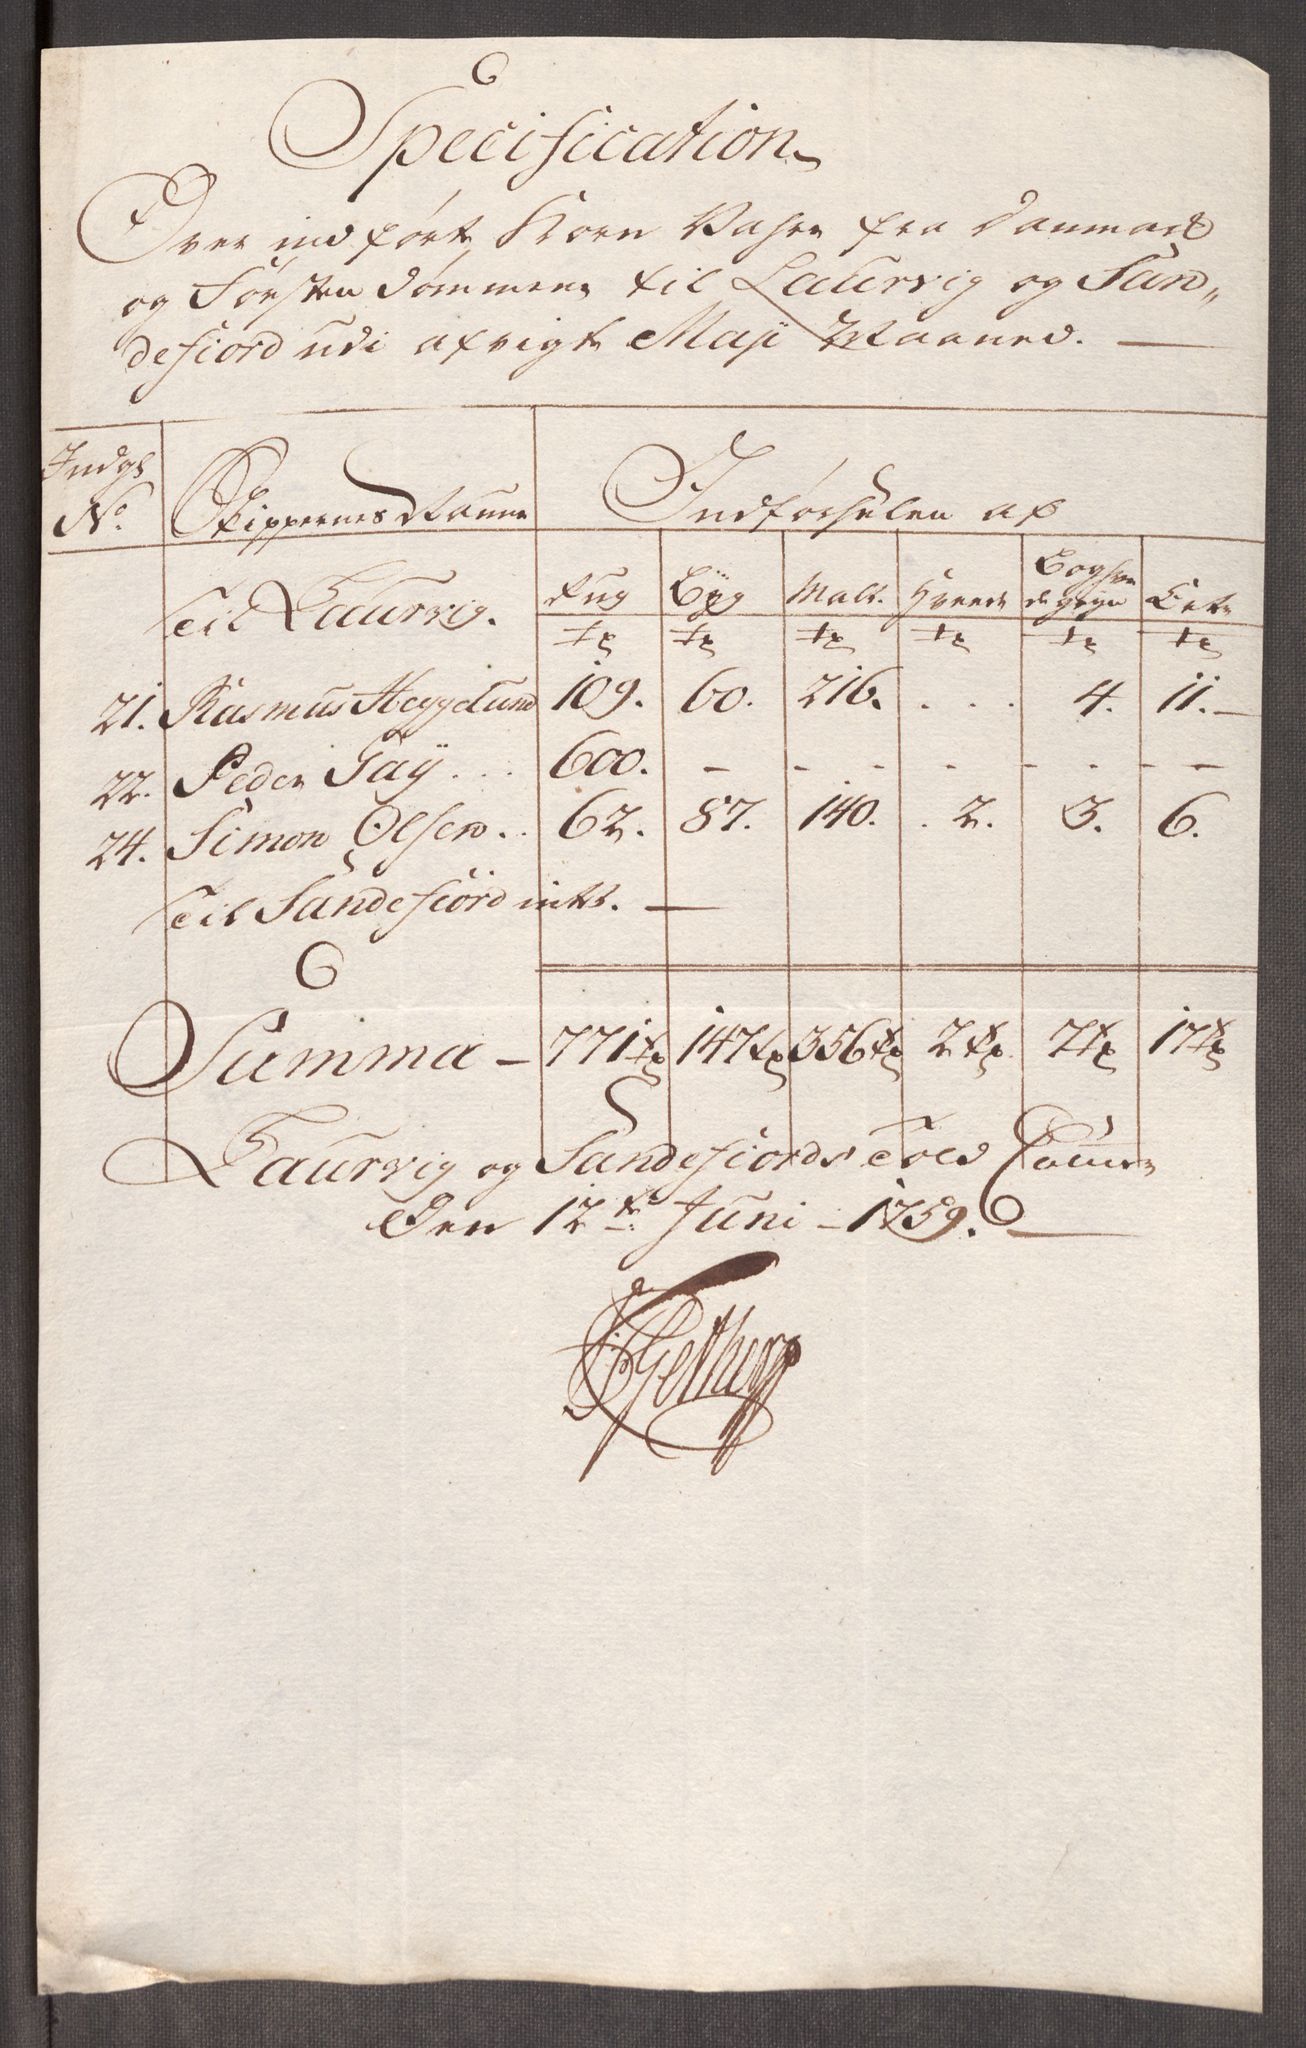 Specification
Over indført Korn Vahre fra Danmark
og Førstendømmene til Laurvig og San„
defiord udi afvigte Maji Maaned. —
Indgs No. Skippernes Nafne Indførselen af
Til Laurvig. Rug Byg Malt. Hvede Boghvedegryn Erter
Tr Tr Tr Tr Tr Tr
21. Rasmus Heggelund 109. 60. 216. . . . 4. 11. —
22. Peder Fay . . . 600. - - - - - - -
24. Simon Olsen . . 62. 87. 140. . 2. 3. 6.
Til Sandefiord intet. —
Summa — 771 Tr 147 Tr 356 Tr 2 Tr 7 Tr 17 Tr
Laurvig og Sandefiords Told
Den 12te Juni - 1759. —